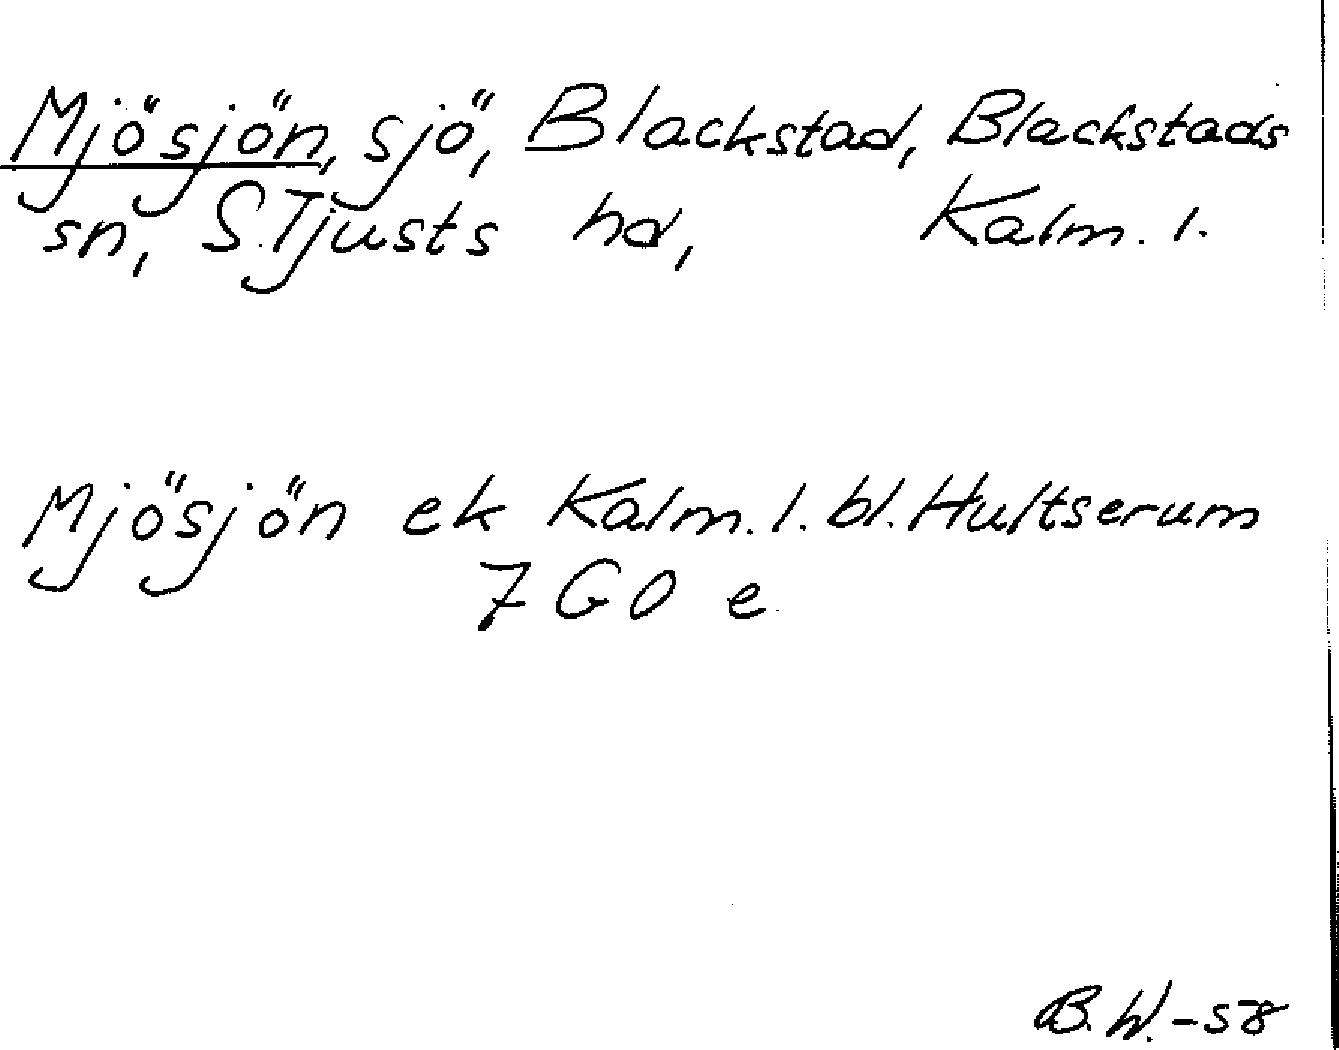 Mjösjön, sjö, Blackstad, Blackstads
sn, S. Tjusts hd, Kalm. l.
Mjösjön ek Kalm. l. bl. Hultserum
7 G O e
B. W. -58